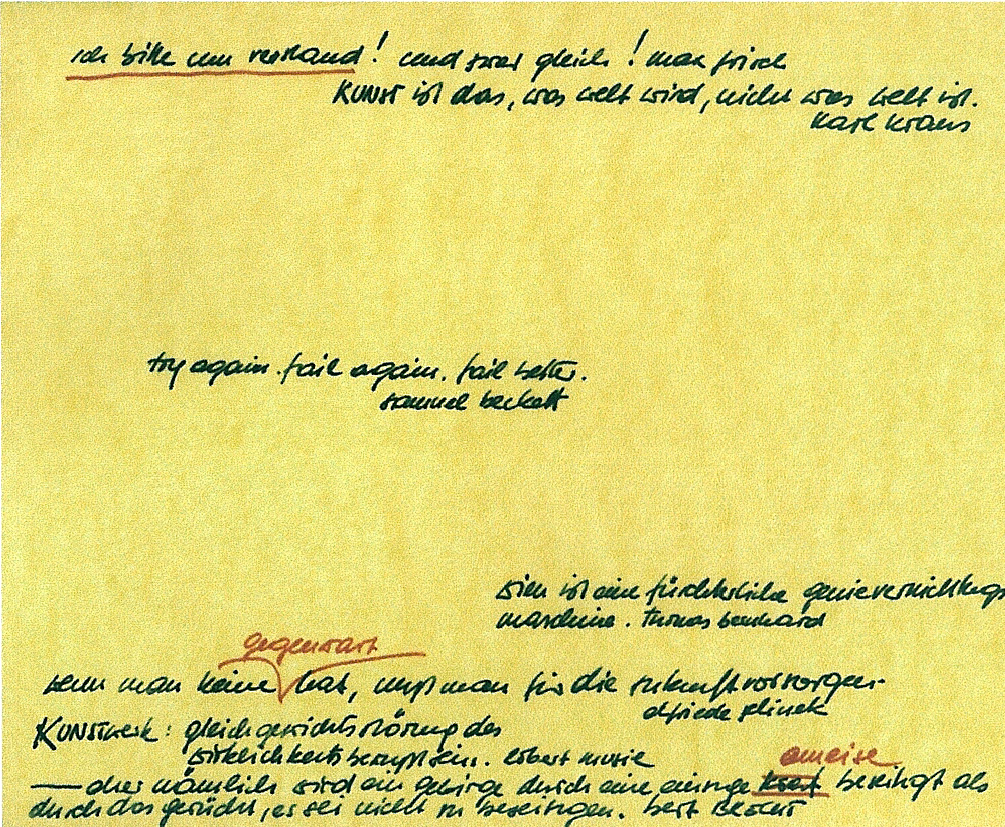 ich bitte um verstand! und zwar gleich! max frisch
KUNST ist das, was welt wird, nicht was welt ist.
karl kraus
try again. fail again. fail better.
samuel beckett
wien ist eine fürchterliche genievernichtungs
maschine. thomas bernhard
gegenwart
wenn man keine hat, muß man für die zukunft vorsorgen.
elfriede jelinek
KUNSTwerk: gleichgewichtsstörung des
wirklichkeitsbewußtseins. robert musil
ameise
— eher nämlich wird ein gebirge durch eine einzige beseitigt als
durch das gerücht, es sei nicht zu beseitigen. bert brecht